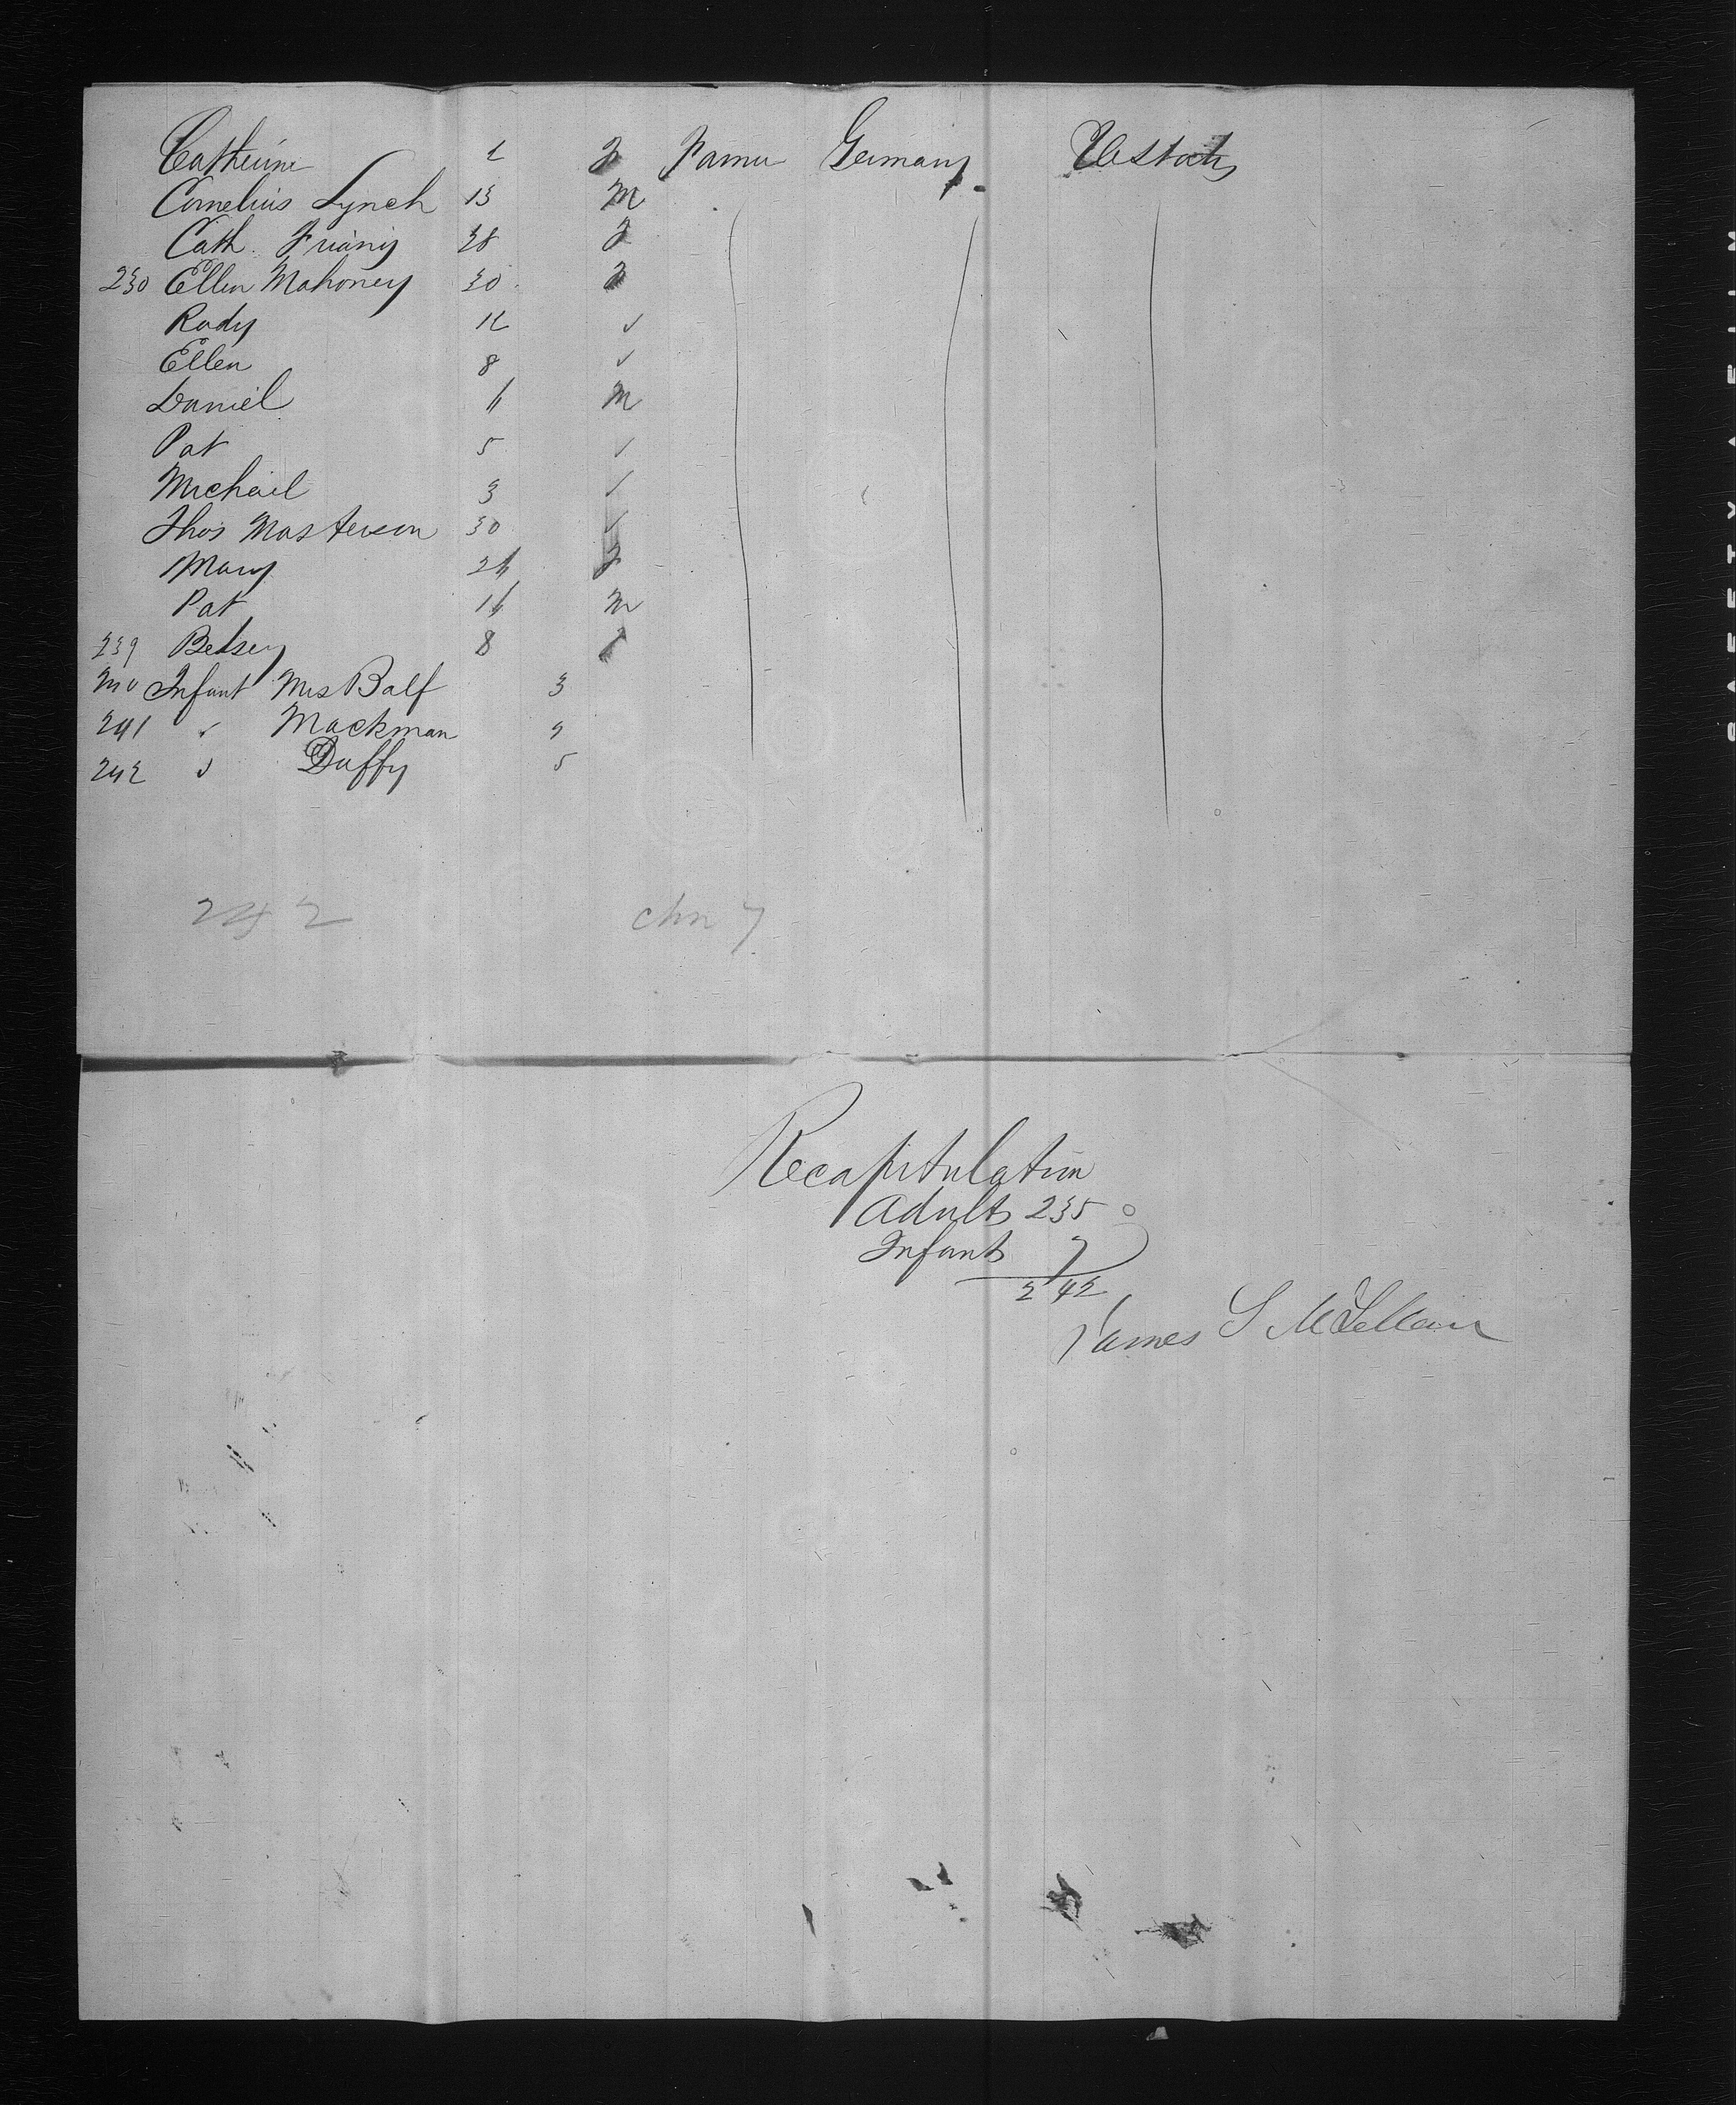 Catherine 2 F Farmer Germany U States
Cornelius Lynch 13 M
Cath 28 F
230 Ellen Mahoney 30 F
Rody 12 ✓
Ellen 8 ✓
Daniel M
Pat 5 ✓
Michail 3 ✓
Thos Masterson 30 ✓
Mary F
Pat M
239 Betsey 8 F
240 Infant Mrs Balf 3
241 ✓ Mackman 9
242 ✓ Duffy 5
242 chn 7
Recapitulation
Adults 235
Infants 7
242
James S McLellan